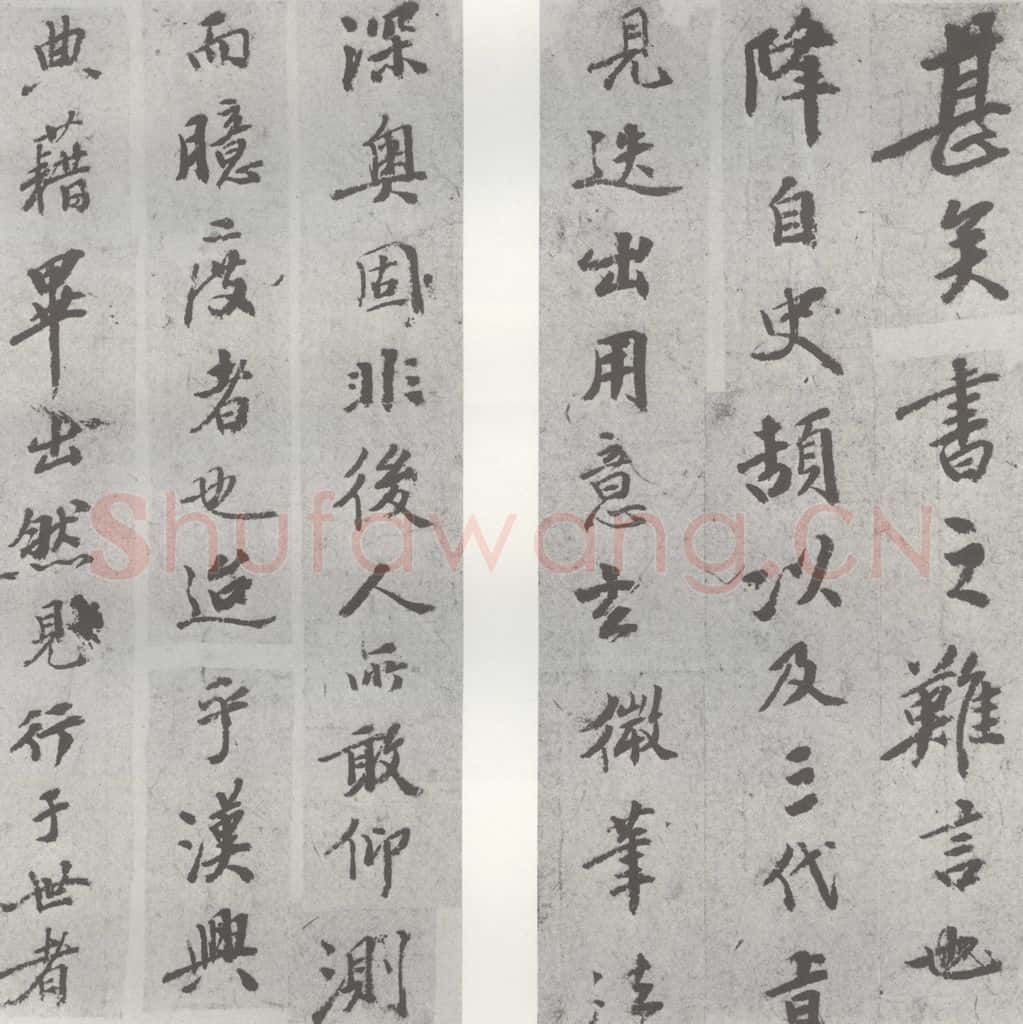 甚矣書之難言也
降自史頡以及三代旨
見迭出用意玄微筆法
深奧固非後人所敢仰測
而臆度者也迨乎漢興
典藉畢出然見行于世者
Shufawang.CN